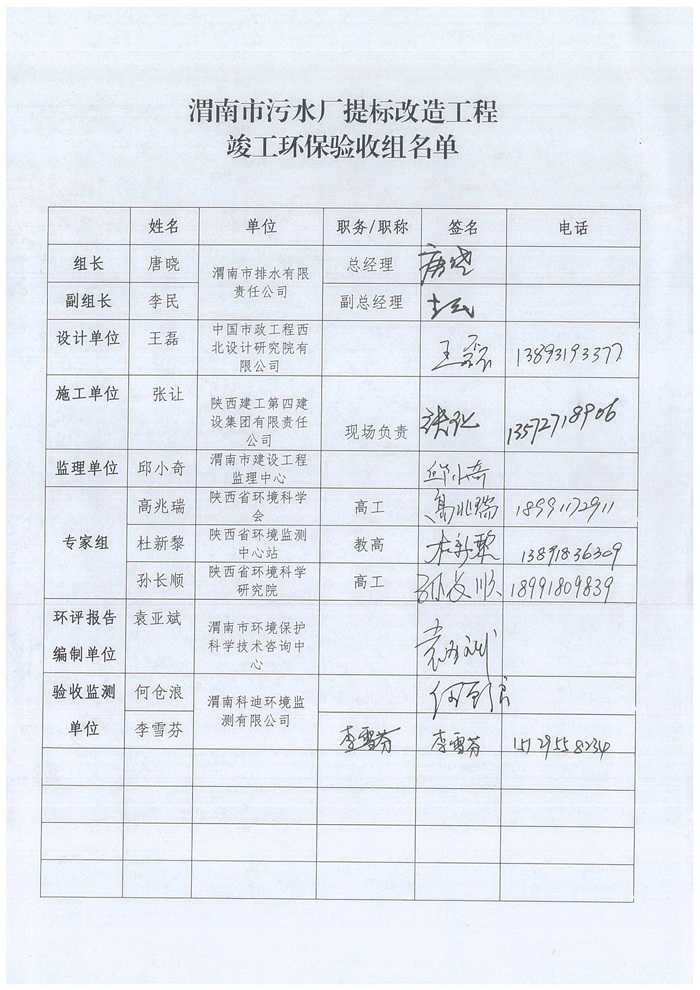 渭南市污水厂提标改造工程
竣工环保验收组名单
姓名 单位 职务/职称 签名 电话
组长 唐晓 渭南市排水有限 总经理 唐晓
责任公司
副组长 李民 副总经理 李民
设计单位 王磊 中国市政工程西 王磊 13893193377
北设计研究院有
限公司
施工单位 张让 陕西建工第四建 现场负责 张让 13572718906
设集团有限责任
公司
监理单位 邱小奇 渭南市建设工程 邱小奇
监理中心
专家组 高兆瑞 陕西省环境科学 高工 高兆瑞 18991172911
会
杜新黎 陕西省环境监测 教高 杜新黎 13891836309
中心站
孙长顺 陕西省环境科学 高工 孙长顺 18991809839
研究院
环评报告 袁亚斌 渭南市环境保护 袁亚斌
编制单位 科学技术咨询中
心
验收监测 何仓浪 渭南科迪环境监 何仓浪
单位 李雪芬 测有限公司 李雪芬 李雪芬 15129558234